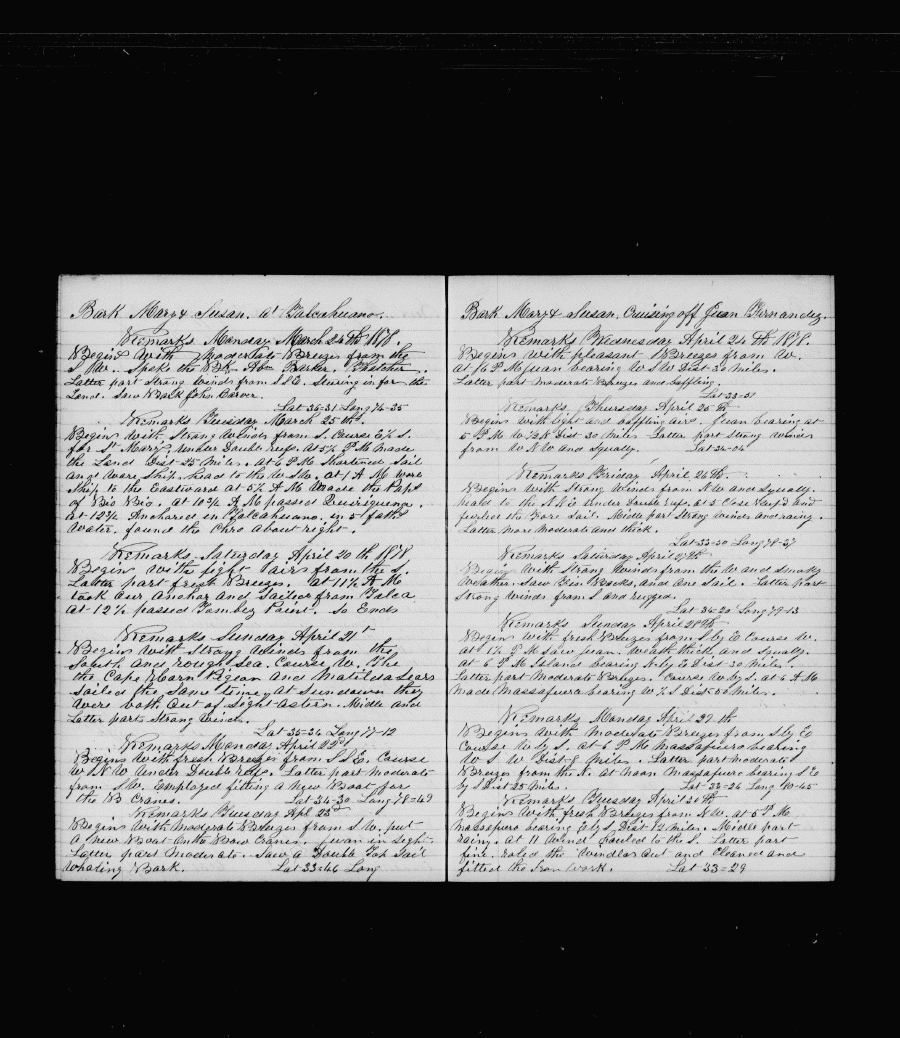 Bark Mary & Susan. at Talcahuano.
Remarks Monday March 24th 1878.
Begins with Moderate Breezes from the
S W. Spoke the Bk. Abm Barker.
Latter part Strong winds from S S E. Steering in for the
Land. Saw Bark John Carver.
Lat 36-31 Long 74-35
Remarks Tuesday March 25th.
Begins with Strong Winds from S. Course E ½ S.
for St Mary, under Double reefs. at 5½ P M made
the Land Dist 25 Miles. at 6 P M Shortened Sail
and Wore Ship. head to the W S W. at 1 A M wore
Ship to the Eastward at 5½ A M Made the Paps
of Bio Bio. at 10¾ A M passed Quiriquena.
at 12¾ Anchored in Talcahuano. in 5 faths
Water. found the Chro about right.
Remarks Saturday April 20th 1878
Begins with light airs from the S.
Latter part fresh Breezes. at 11½ A M
took our Anchor and Sailed from Talca.
at 12¼ passed Tombez Point. So Ends
Remarks Sunday April 21st
Begins with Strong Winds from the
South and rough Sea. Course W. The
the Cape Horn Pigeon and Matilda Sears
Sailed the Same time, at Sundown they
were both out of Sight Astern. Midle and
Latter parts Strong Winds.
Lat 35-34 Long 77-12
Remarks Monday April 22d
Begins with fresh Breezes from S S E. Course
W N W under Double Reefs. Latter part moderate
from S W. Employed fitting a New Boat for
the B Cranes. Lat 34-30 Long 78=49
Remarks Tuesday Apl 23d
Begins with moderate Breezes from S W. put
a New Boat On the Bow Cranes. Juan in Sight.
Latter part moderate. Saw a Double Top Sail
Whaling Bark. Lat 33=46 Long
Bark Mary & Susan. Cruising off Juan Fernandez.
Remarks Wednesday April 24th 1878.
Begins with pleasant Breezes from W.
at 6 P M Juan bearing W S W Dist 30 Miles.
Latter part moderate Breezes and baffling.
Lat 33-51
Remarks Thursday April 25th
Begins with light and baffling airs. Juan bearing at
5 P M W ½ N Dist 30 Miles. Latter part strong winds
from W N W and Squally. Lat 34-04
Remarks Friday April 26th
Begins with Strong Winds from N W and Squally.
head to the N N E under Double reefs. at 5 Close Reef'd and
furled the Fore Sail. Midle part Strong Winds and rainy.
Latter more moderate and thick.
Lat 33-50 Long 78-37
Remarks Saturday April 27th
Begins with Strong Winds from the W and Smoky
Weather. Saw Fin Backs, and One Sail. Latter part
Strong Winds from S and rugged.
Lat 34-20 Long 79-13
Remarks Sunday April 28th
Begins with fresh Breezes from S by E Course W.
at 1½ P M Saw Juan. Weath thick and Squally.
at 6 P M Island bearing N by E Dist 30 Miles.
Latter part Moderate Breezes. Course W by S. at 6 A M
Made Massafuero bearing W ½ S Dist 50 Miles.
Remarks Monday April 29th
Begins with moderate Breezes from S by E
Course W by S. at 6 P M Massafuero bearing
W S W Dist 8 Miles. Latter part moderate
Breezes from the N. at Noon Massafuero bearing S E
by S Dist 25 Miles. Lat 33-26 Long 80-45
Remarks Tuesday April 30th
Begins with fresh Breezes from N W. at 5 P M
Massafuero bearing E by S Dist 12 Miles. Midle part
rainy. at 11 Wind hauled to the S. Latter part
fine. roled the Windlas Out and Cleaned and
fitted the Iron work. Lat 33=29